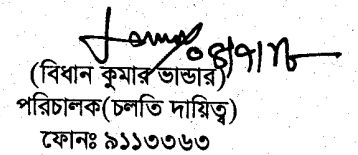 (বিধান কুমার ভান্ডার)
পরিচালক(চলতি দায়িত্ব)
ফোনঃ ৯১১৩৩৬৩